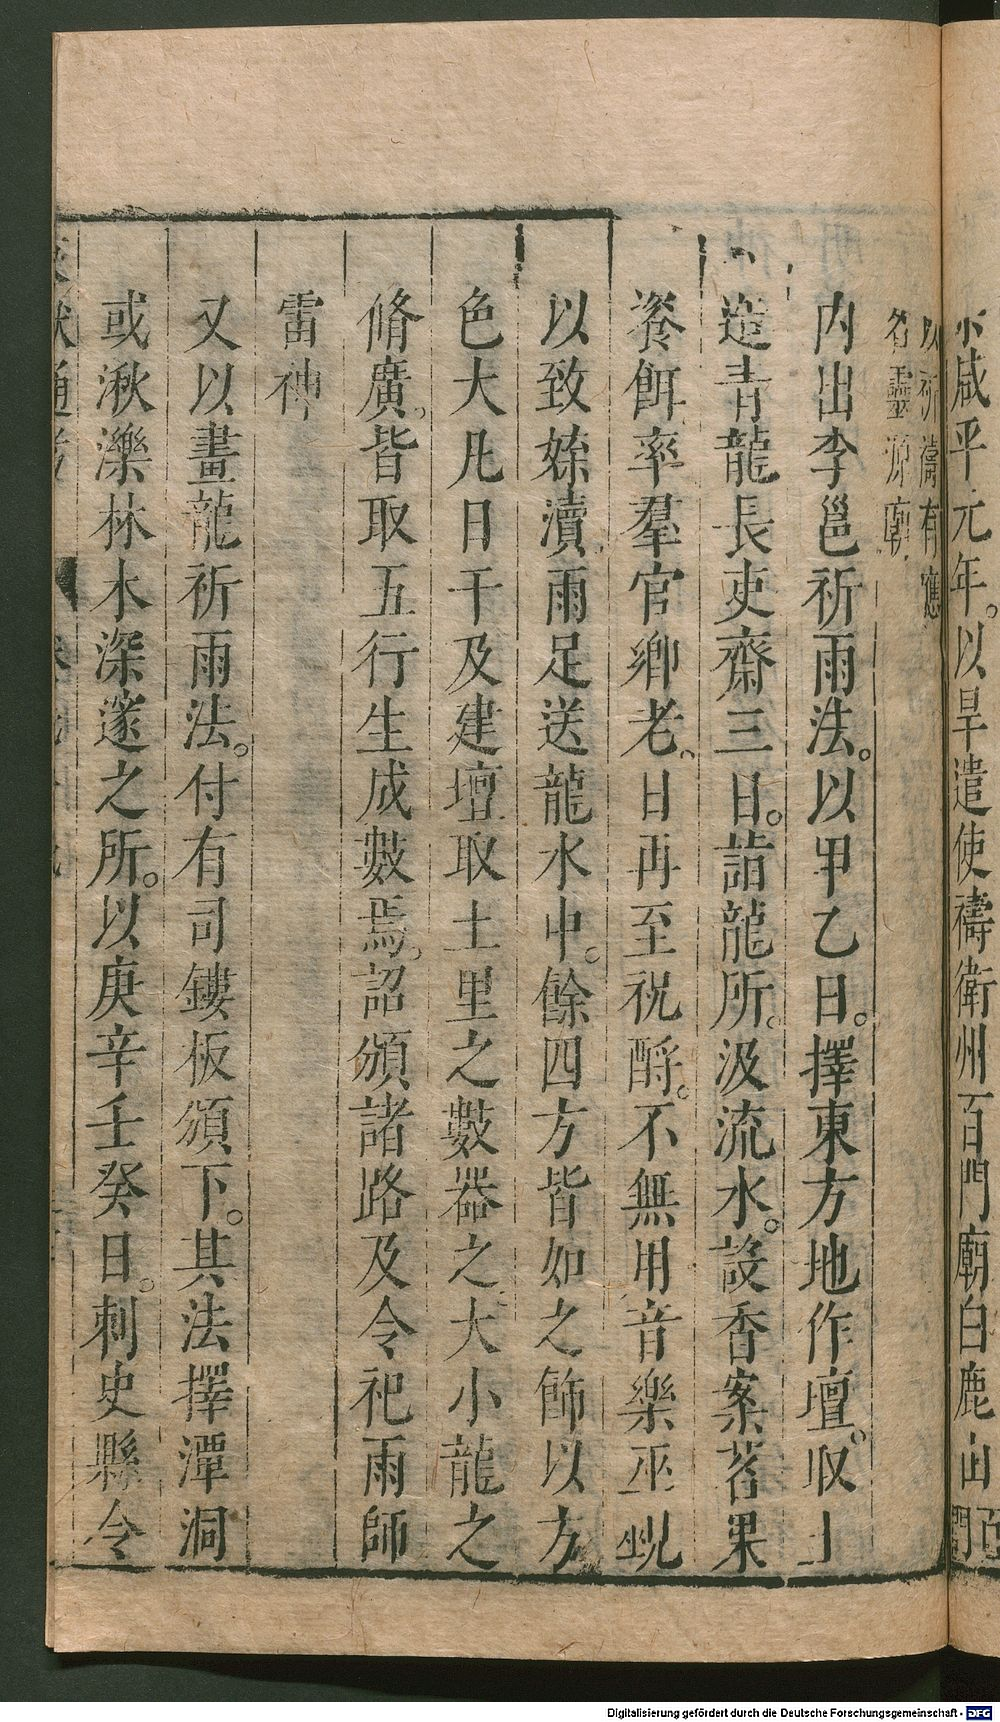 咸平元年。以旱遣使禱衛州百門廟白鹿山百門
以祈濤有應
名靈源廟
内出李邕祈雨法。以甲乙日。擇東方地作壇。取土
造青龍長吏齋三日。詣龍所。汲流水。設香案茗果
餈餌率羣官鄉老。日再至祝酹。不無用音樂巫覡
以致媟瀆雨足送龍水中。餘四方皆如之飾以方
色大凡日干及建壇取土里之數器之大小龍之
脩廣。皆取五行生成數焉。詔頒諸路及令祀雨師
雷神
又以畫龍祈雨法。付有司鏤板頒下。其法擇潭洞
或湫濼林木深邃之所。以庚辛壬癸日。刺史縣令
獻通考
Digitalisierung gefördert durch die Deutsche Forschungsgemeinschaft - DFG